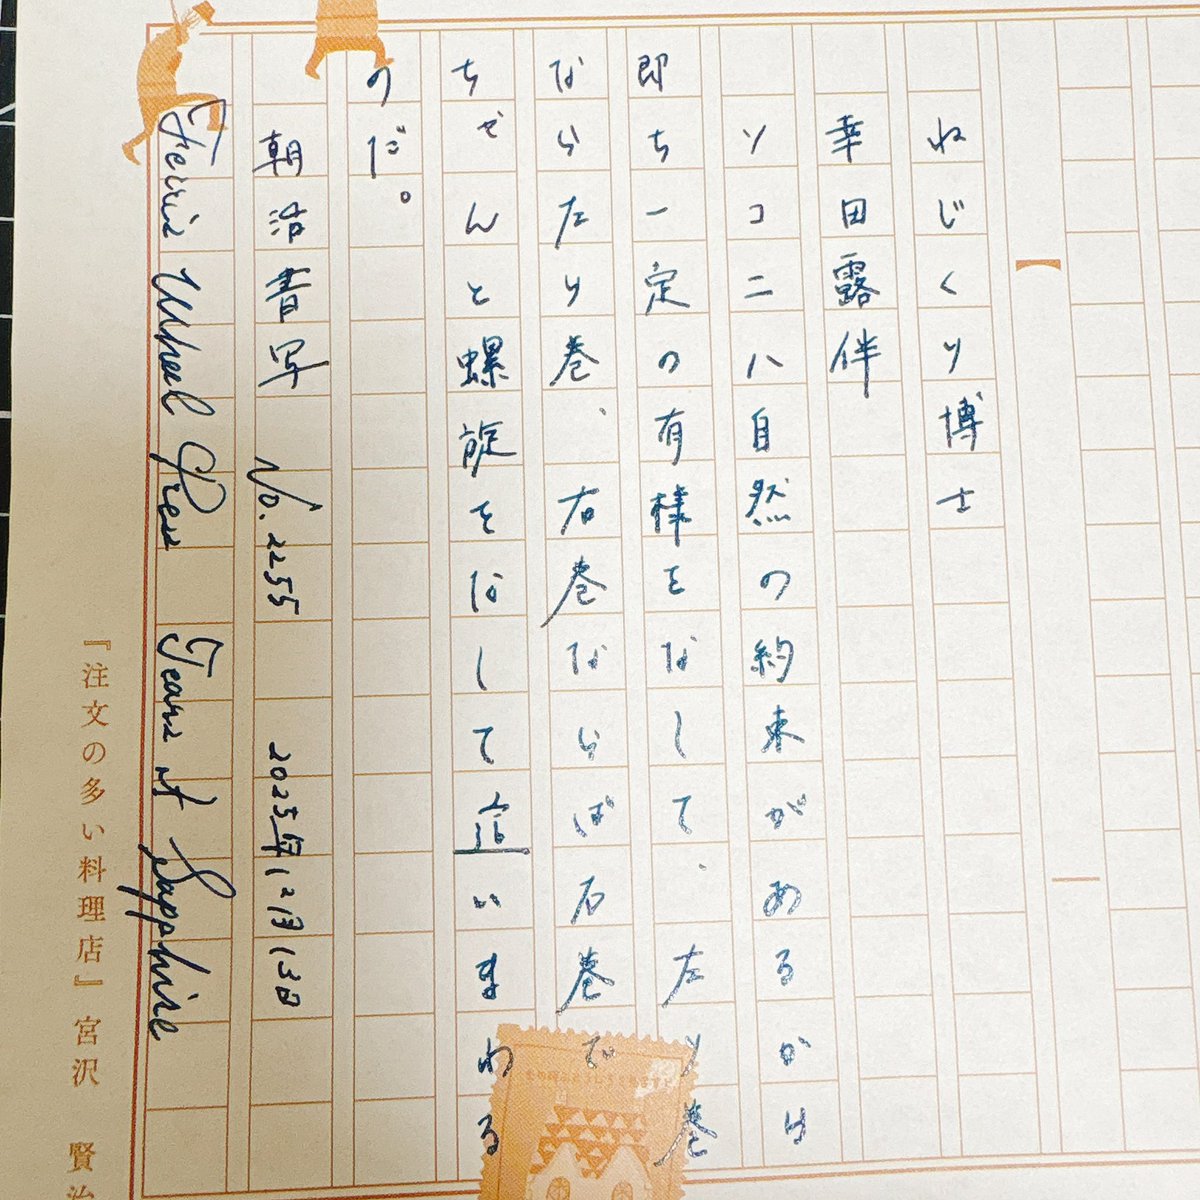 ねじくり博士
幸田露伴
ソコニハ自然の約束があるから
即ち一定の有様をなして、左り巻
なら左り巻、右巻ならば右巻で
ちゃんと螺旋をなして這いまわる
のだ。
朝活書写 No.2255 2025年12月13日
Ferris Wheel Press Tears of Sapphire
『注文の多い料理店』宮沢 賢治